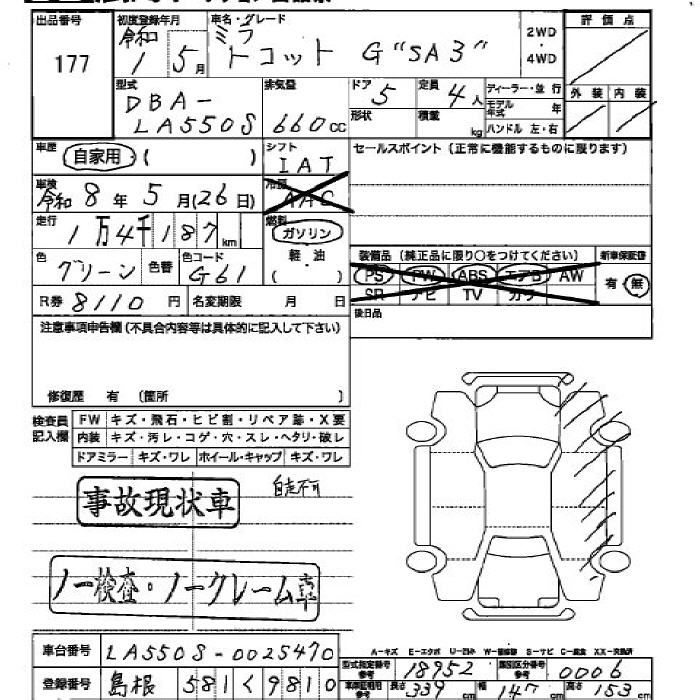 出品番号
177
初度登録年月
令和
1 5月
車名・グレード
ミラ
トコット G "SA3"
2WD
・
4WD
評価点
外装 内装
型式
DBA-
LA550S
排気量
660cc
ドア 5
定員 4人
形状
積載 kg
ディーラー・並行
モデル年式 年
ハンドル 左・右
車歴 自家用 ( )
シフト
IAT
セールスポイント (正常に機能するものに限ります)
車検
令和 8年5月(26日)
冷房
AAC
走行
1万4千187km
燃料
ガソリン
軽・油
( )
色
グリーン
色替
色コード
G61
装備品 (純正品に限り○をつけてください)
PS PW ABS エアB AW
SR ナビ TV カワ
新車保証書
有・無
R券 8110円
名変期限 月 日
後日品
注意事項申告欄 (不具合内容等は具体的に記入して下さい)
修復歴 有 (箇所 )
検査員
記入欄
FW キズ・飛石・ヒビ割・リペア跡・X要
内装 キズ・汚レ・コゲ・穴・スレ・ヘタリ・破レ
ドアミラー キズ・ワレ ホイール・キャップ キズ・ワレ
事故現状車
自走不可
ノー検査・ノークレーム車
車台番号 LA550S-0025470
登録番号 島根 581 く 9810
A-キズ E-エクボ U-凹み W-補修跡 S-サビ C-腐食 XX-交換済
型式指定番号 参考 18952
類別区分番号 参考 0006
車両区画用 参考 長さ 339 cm 幅 147 cm 高さ 153 cm